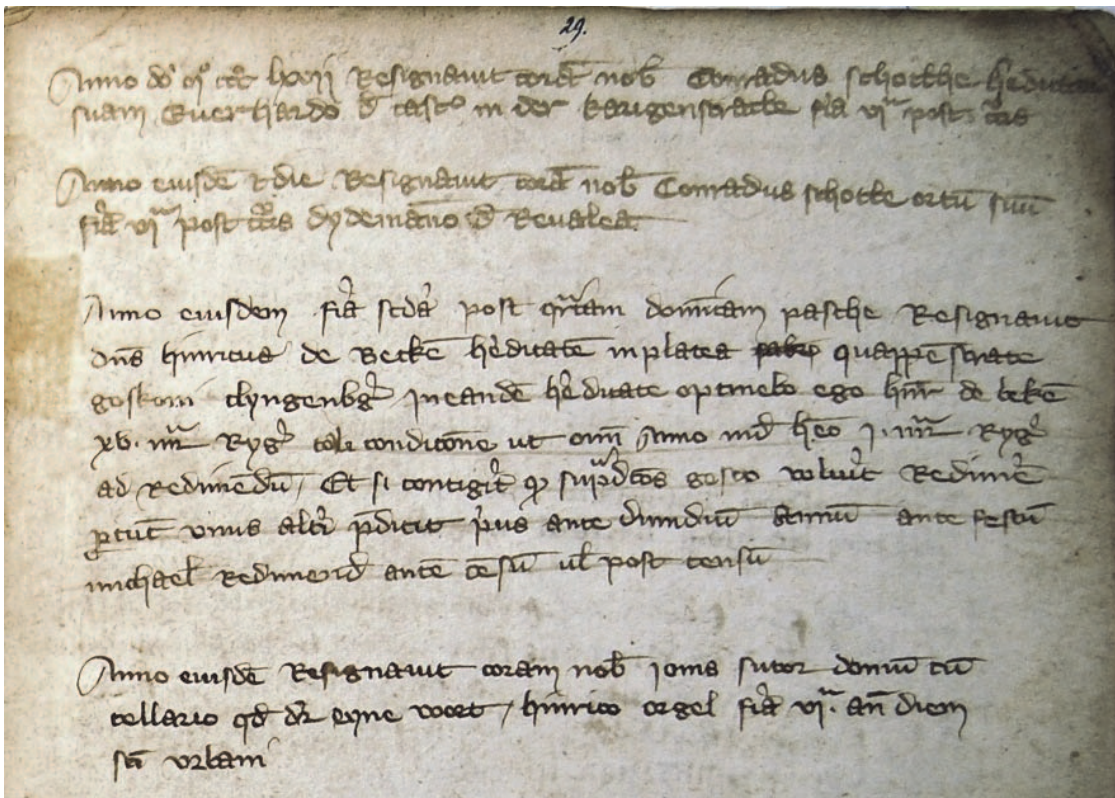 29.
Anno dō mͦ cccͦ lxxij Resignauit corā nob Conradus schotthe h'editatem
suam Euerhardo d' castͦ in der karigenstrate fi'a vjᵃ post
Anno eiusdē & die Resignauit corā nob Conradus schotte ortū suū
fi'a vjᵃ post dydemāno d' Reualea
Anno eiusdem fi'a scd'a post q̄rtam domīcam pasche Resignauit
dn̄s hinricus de Beckē h'editatē in platea quappēstrate
goskoni clyngenb'g' in eandē h'editate optineo ego hinr̄ de bekē
xv. mr̄ Ryg' tali condicōne ut om̄i Anno ind' h'eo j. mr̄ Ryg'
ad Redimēdū, Et si contig'it q̄ sup'dc̄os gosco volu'it Redim'e
vnus alt'i p̄dicit p'us ante dimidiū Annū ante festū
michael' Redimend' ante cēsū ul' post censū
Anno eiusdē Resignauit coram nob ioms sutor domū cū
cellario qd' dr̄ eyne woort, hinrico orgel fi'a vjᵃ. an̄ diem
sc̄i vrbani